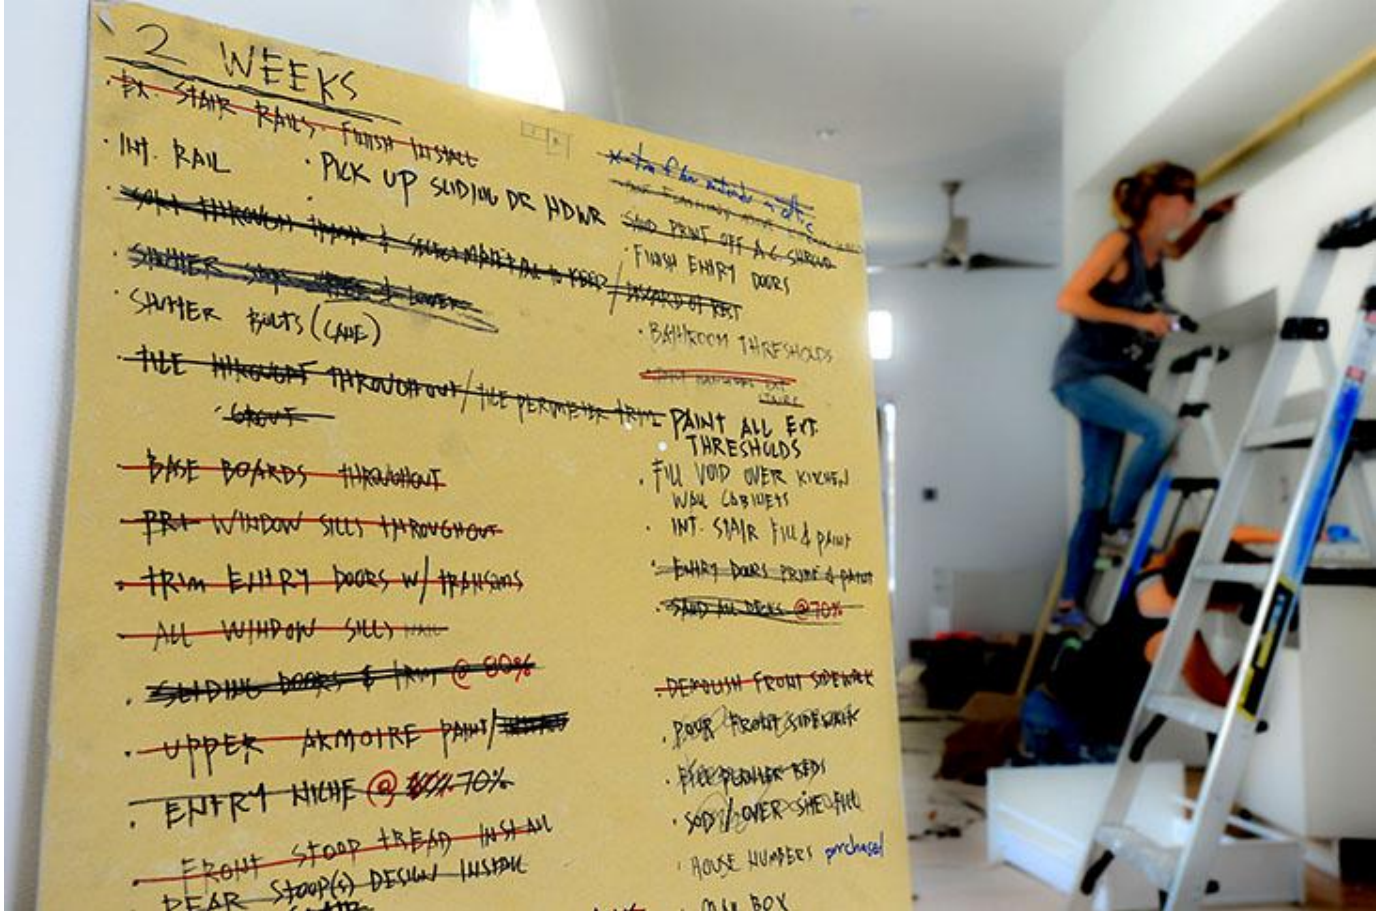 2 WEEKS
· EX. STAIR RAILS · FINISH INSTALL
· INT. RAIL
· PICK UP SLIDING DR HDWR
SORT THROUGH & SELECT MATERIAL TO KEEP / DISCARD OF REST
SHUTTER STOPS & LOWER
· SHUTTER BOLTS (CANE)
· TILE THROUGHOUT / TILE PERIMETER TRIM
· GROUT
· BASE BOARDS THROUGHOUT
· WINDOW SILLS THROUGHOUT
· TRIM ENTRY DOORS W/ TRANSOMS
· ALL WINDOW SILLS
· SLIDING DOORS & TRIM @ 80%
· UPPER ARMOIRE PAINT/
· ENTRY NICHE @ 70%
· FRONT STOOP TREAD INSTALL
REAR STOOP(S) DESIGN INSTALL
SAND PAINT OFF A.C. SHROUD
· FINISH ENTRY DOORS
· BATHROOM THRESHOLDS
PAINT ALL EXT.
THRESHOLDS
· FILL VOID OVER KITCHEN
WALL CABINETS
· INT. STAIR FILL & PAINT
· ENTRY DOORS PRIME & PAINT
· SAND ALL DECKS @ 70%
· DEMOLISH FRONT SIDEWALK
· POUR FRONT SIDEWALK
· FILL PLANTER BEDS
· SOD / OVER SITE FILL
· HOUSE NUMBERS purchased
· MAIL BOX